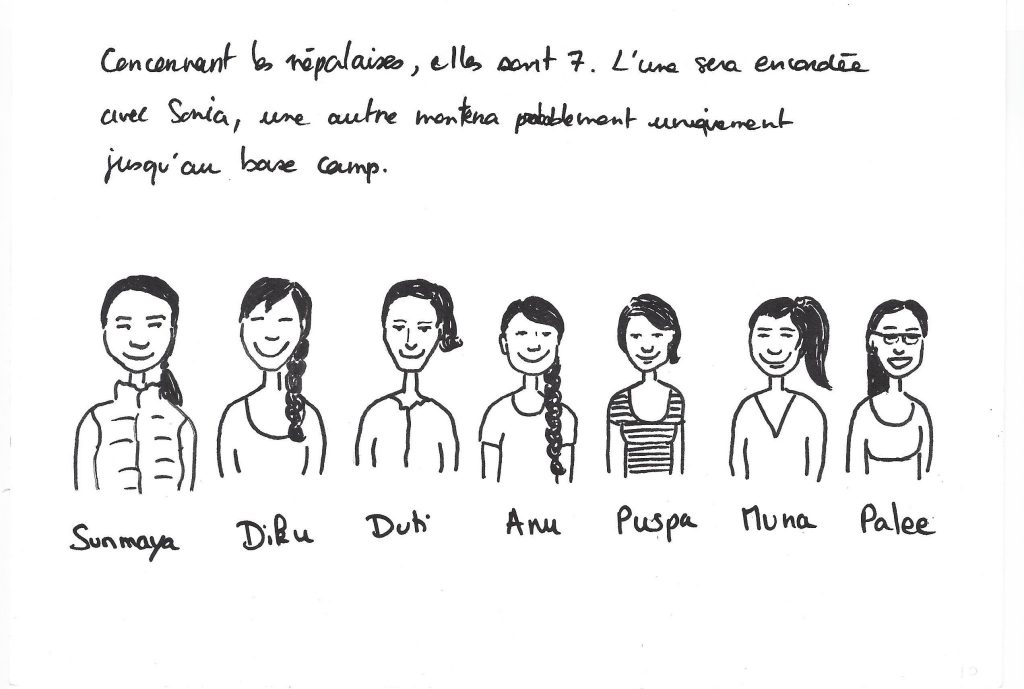 Concernant les népalaises, elles sont 7. L'une sera encordée
avec Sonia, une autre montera probablement uniquement
jusqu'au base camp.
Sunmaya Diku Duti Anu Puspa Muna Palee
10